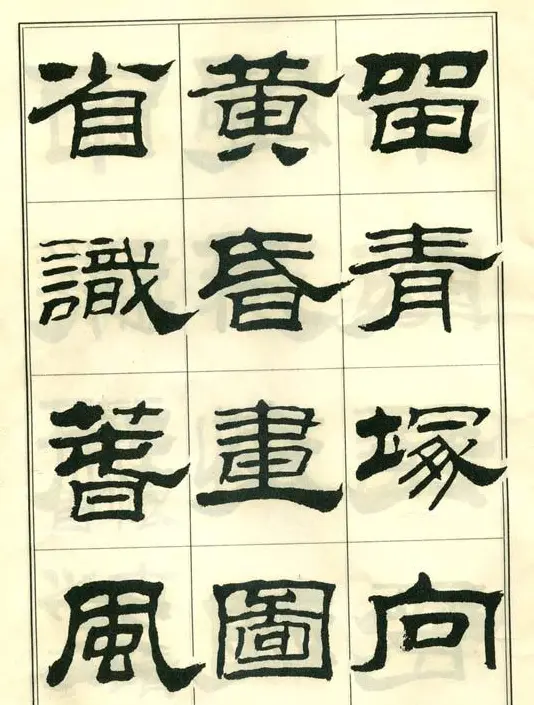 留青塚向
黄昏畫圖
省識春風